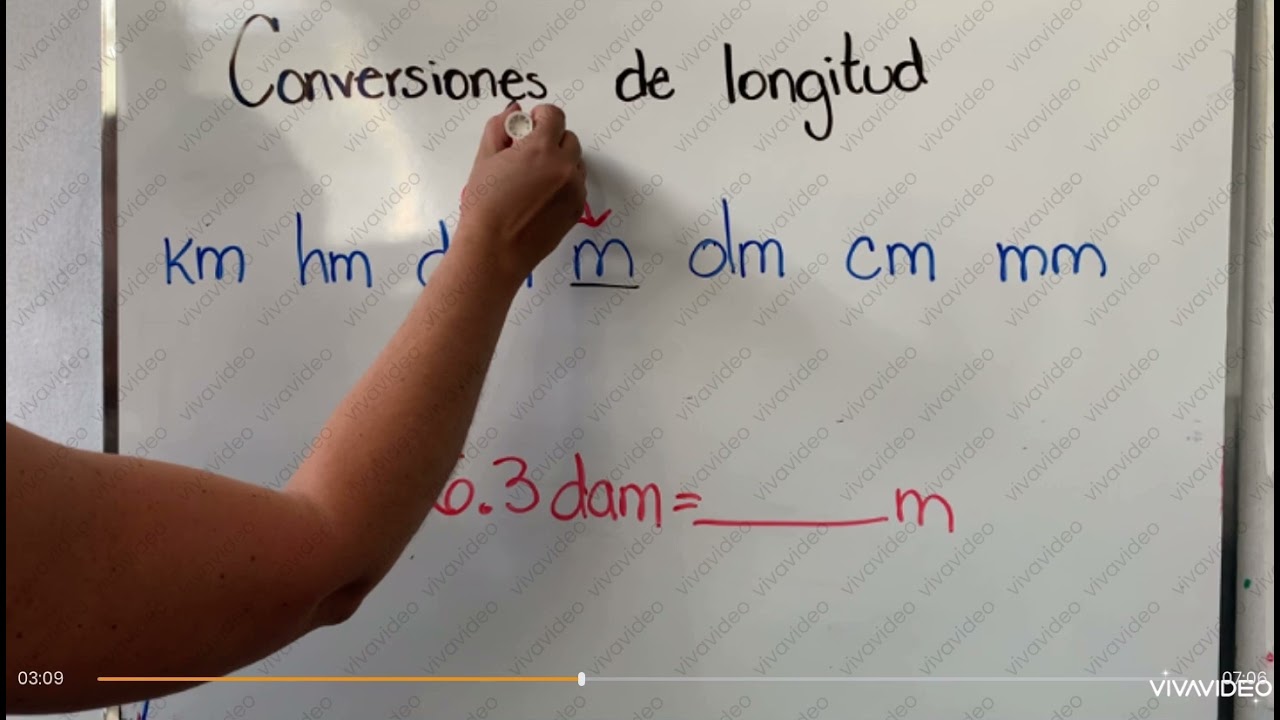 Conversiones de longitud
km hm m dm cm mm
6.3 dam = ______ m
03:09
07:06
VIVAVIDEO